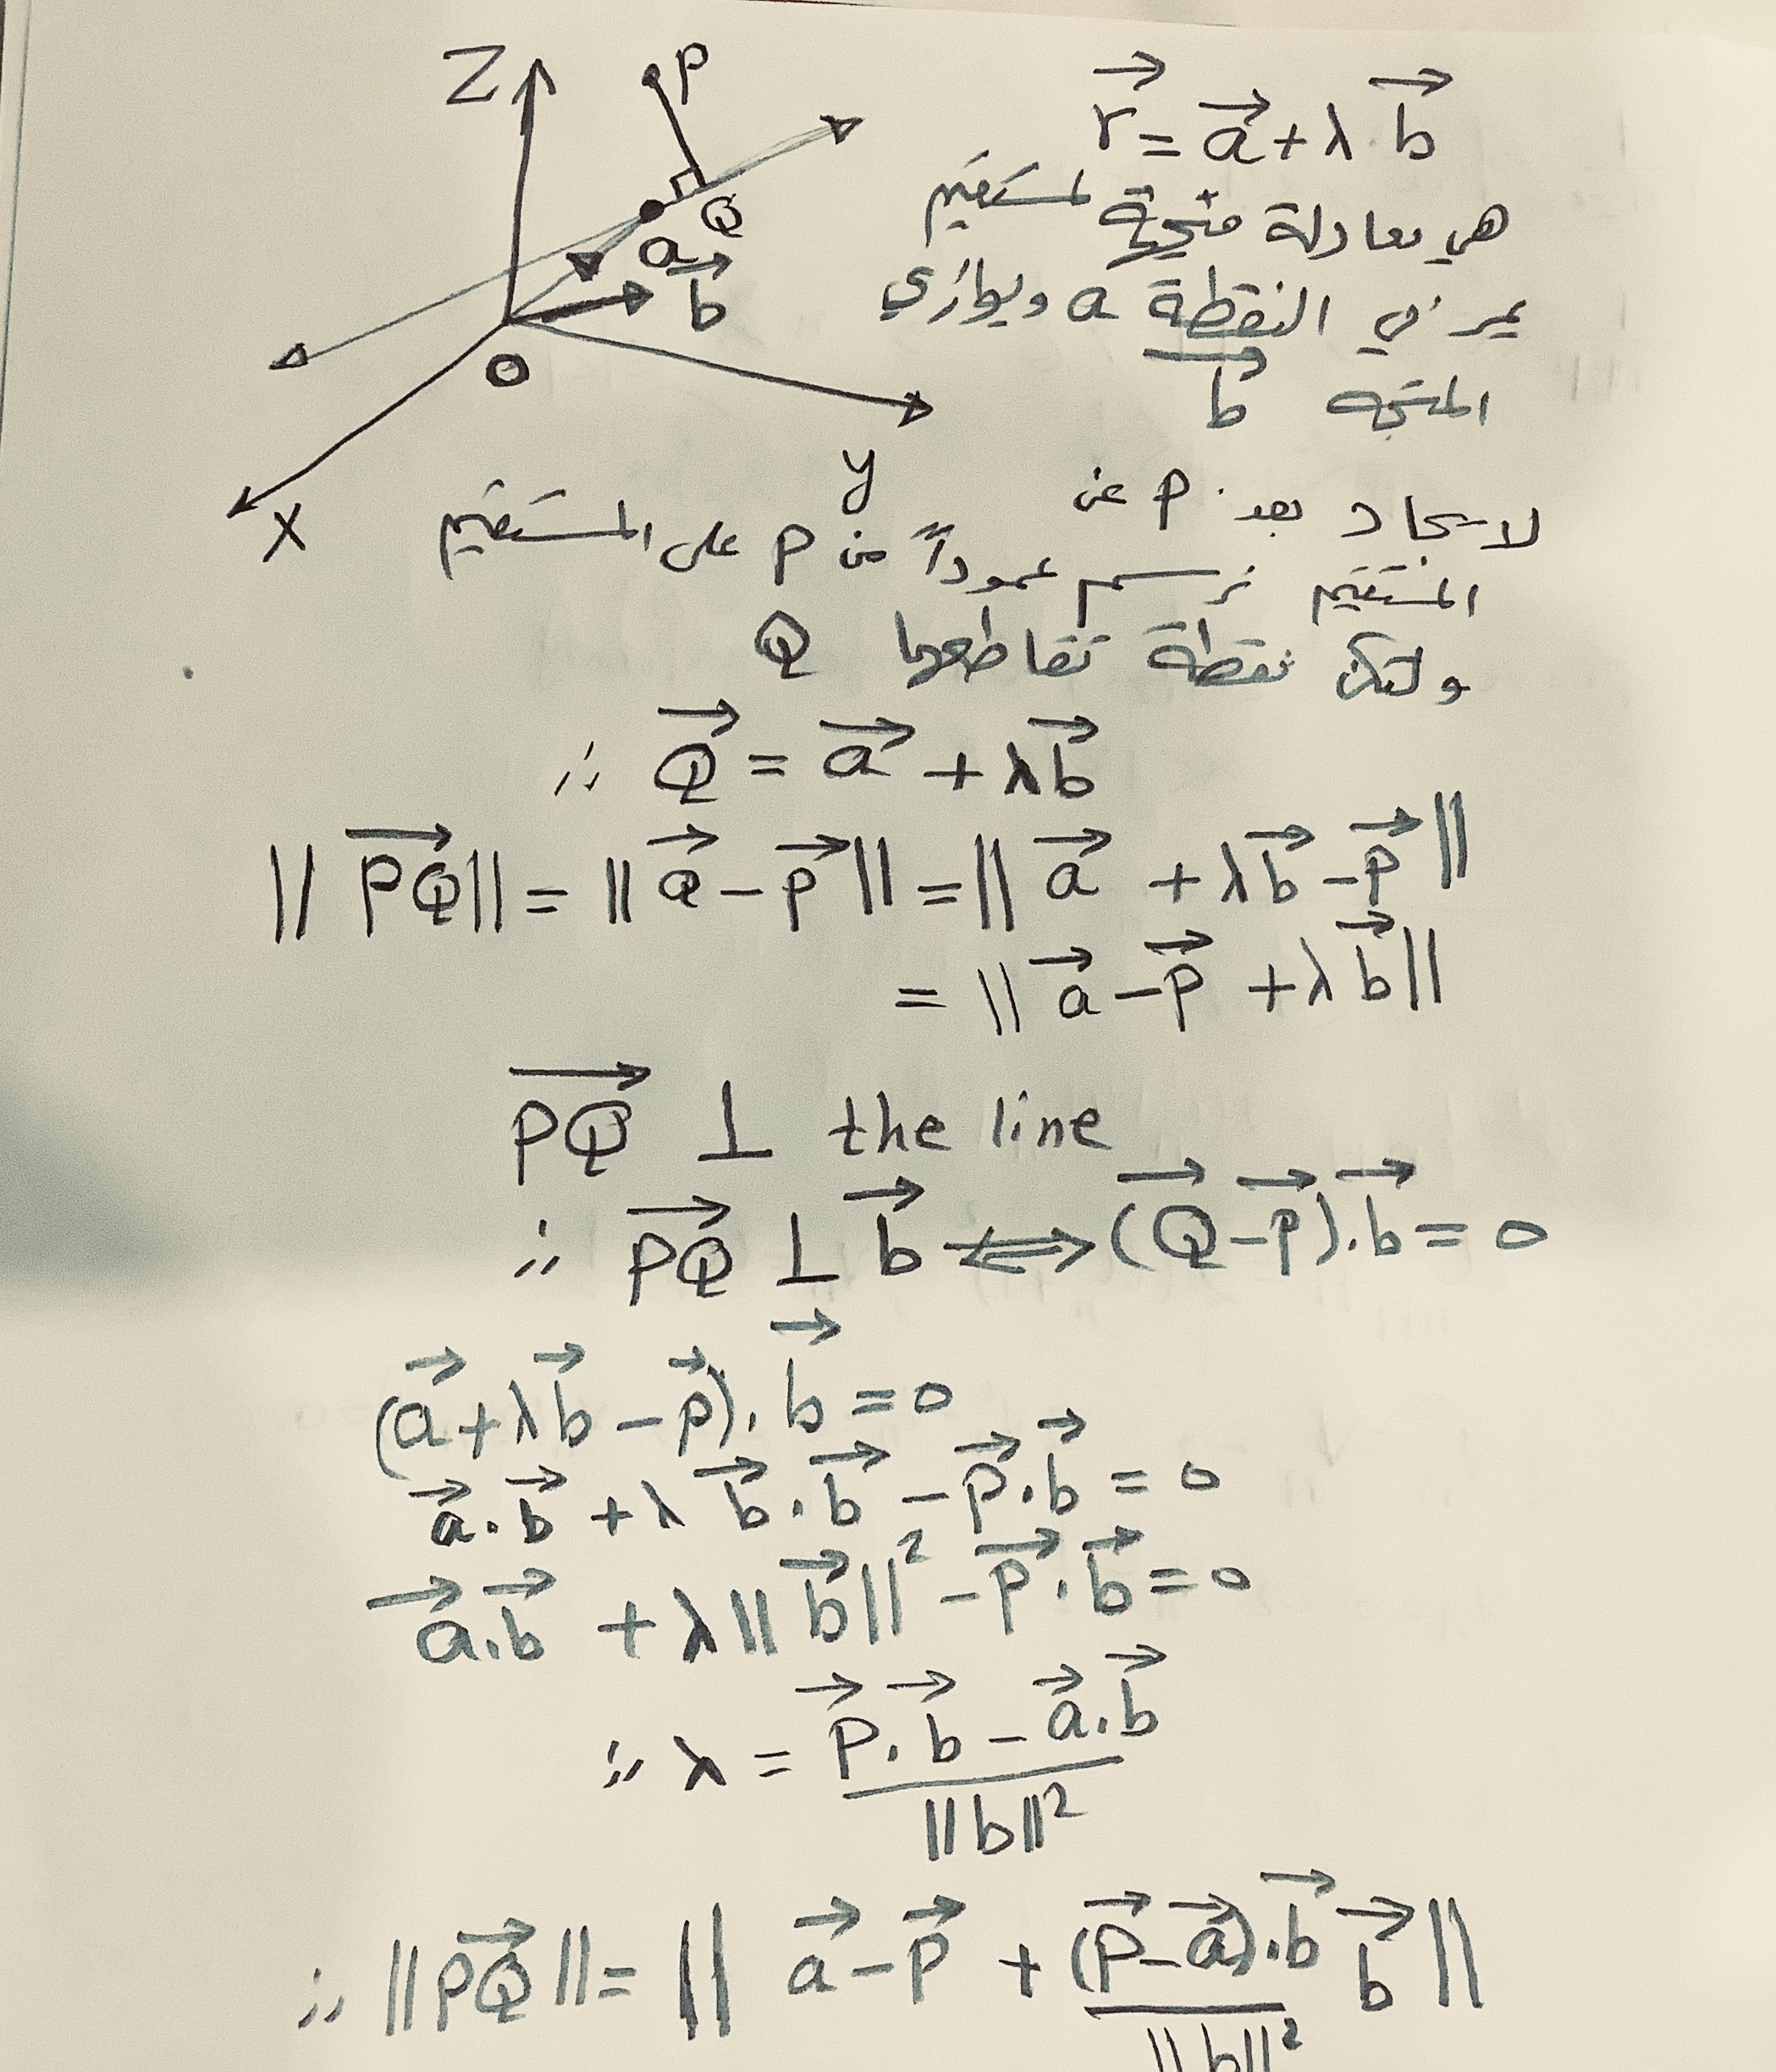 Z
P
Q
a
b⃗
O
X
y
r⃗ = a⃗ + λ b⃗
هي معادلة متجهة لمستقيم
يمر في النقطة a ويوازي
المتجه b⃗
لايجاد بعد P عن
المستقيم نرسم عموداً من P على المستقيم
ولتكن نقطة تقاطعهما Q
∴ Q⃗ = a⃗ + λb⃗
||PQ⃗|| = ||Q⃗ − P⃗|| = ||a⃗ + λb⃗ − P⃗||
= ||a⃗ − P⃗ + λb⃗||
PQ⃗ ⊥ the line
∴ PQ⃗ ⊥ b⃗ ⟺ (Q⃗ − P⃗).b⃗ = 0
(a⃗ + λb⃗ − P⃗).b⃗ = 0
a⃗.b⃗ + λ b⃗.b⃗ − P⃗.b⃗ = 0
a⃗.b⃗ + λ||b⃗||² − P⃗.b⃗ = 0
∴ λ = (P⃗.b⃗ − a⃗.b⃗) / ||b||²
∴ ||PQ⃗|| = || a⃗ − P⃗ + (P⃗ − a⃗).b⃗ / ||b||² b⃗ ||